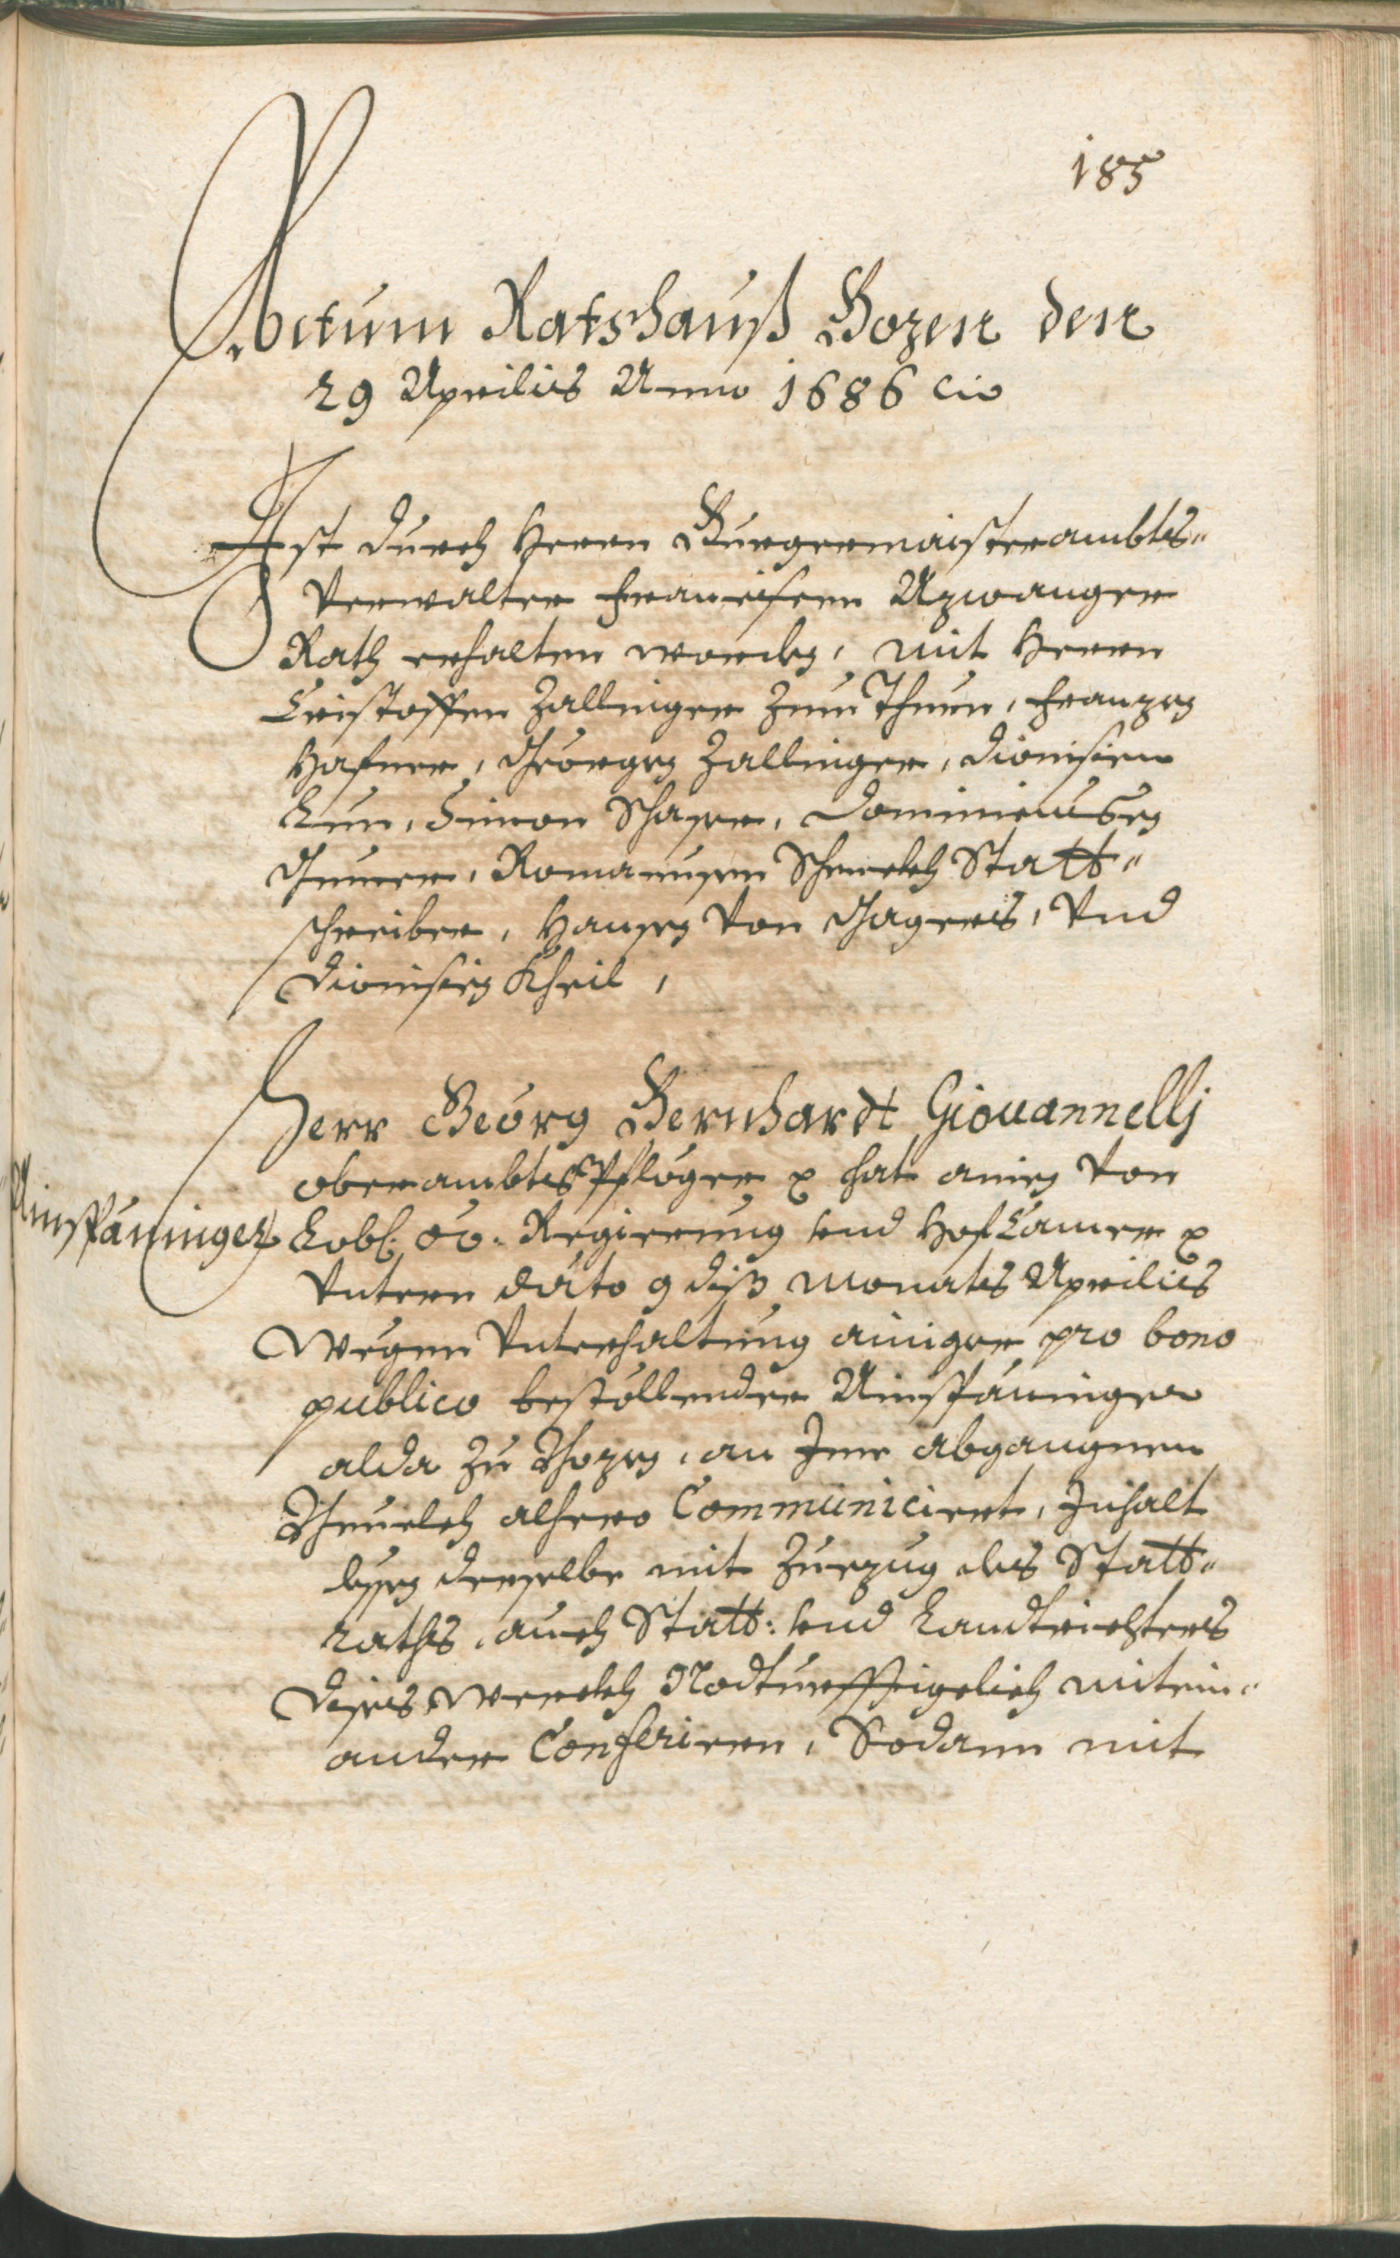 185
Actum Ratshauß Bozen den
29 Aprilis Anno 1686 Cio
Ist durch Herrn Burgermaisterambts-
Verwalter Francisen Azwanger
Rath gehalten worden, mit Herrn
Cristoffen Zallinger zum Thurn, Franzen
Hafner, Georgen Zallinger, Dionisien
Lun, Simon Schaser, Dominicussen
Gumer, Romanusen Schenckh Statt-
schreiber, Hansen von Hagens, Vnd
Dionisien Kheil,
Herr Georg Bernhardt Giouannellj
oberambts Pfleger hat ainen von
Ainspäninger
Lobl: oö: Regierung vnd HofCamer
Vntern dato 9 diß Monats Aprilis
Wegen Vnterhaltung ainiger pro bono
publico bestöllender Ainspäninger
alda zu Bozen, an Ime abgangnen
Beuelch alhero Communiciert, Inhalt
dessen derselbe mit Zuezug des Statt-
raths, auch Statt: vnd Landtrichters
dises Werckh Nodturfftigelich mitein-
ander Conferiern, Sodann mit